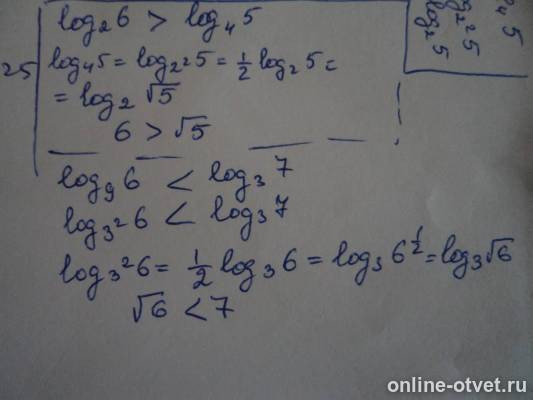 25
log₂6 > log₄5
log₄5 = log₂²5 = ½ log₂5 =
= log₂ √5
6 > √5
log₉6 < log₃7
log₃²6 < log₃7
log₃²6 = ½ log₃6 = log₃6^½ = log₃√6
√6 < 7
4 5
2² 5
log₂ 5
online-otvet.ru